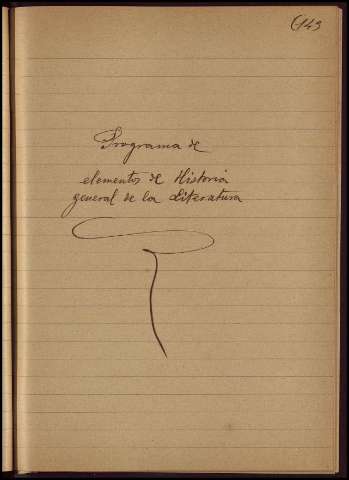 149
Programa de
elementos de Historia
general de la Literatura